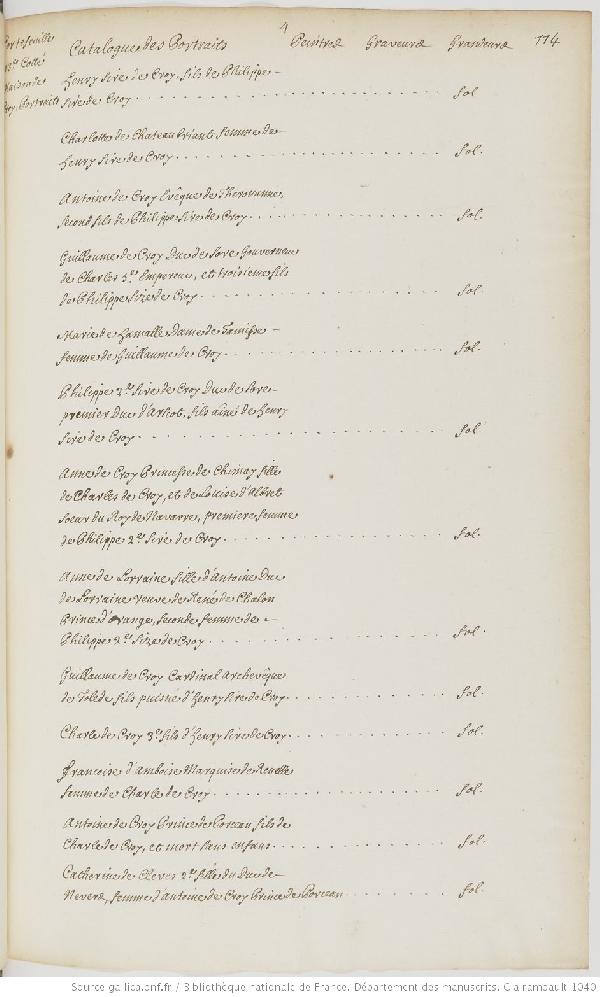 4
Portefeuille Catalogue des Portraits Peintres Graveurs Grandeurs 114
Cotté
Maison de
Croy, Portraits
Henry Sire de Croy, fils de Philippe
Sire de Croy. fol.
Charlotte de Chateaubriant femme de
Henry Sire de Croy. fol.
Antoine de Croy Evêque de Therouanne,
second fils de Philippe Sire de Croy. fol.
Guillaume de Croy Duc de Sore Gouverneur
de Charles 5e Empereur, et troisieme fils
de Philippe Sire de Croy. fol.
Marie de Hamalle Dame de
femme de Guillaume de Croy. fol.
Philippe 2e Sire de Croy Duc de Sore
premier Duc d'Arscot, fils aîné de Henry
Sire de Croy. fol.
Anne de Croy Princesse de Chimay fille
de Charles de Croy, et de Louise d'Albret
soeur du Roy de Navarre, premiere femme
de Philippe 2e Sire de Croy. fol.
Anne de Lorraine fille d'Antoine Duc
de Lorraine veuve de René de Chalon
Prince d'orange, seconde femme de
Philippe 2e Sire de Croy. fol.
Guillaume de Croy Cardinal Archevêque
de Tolede fils puisné d'Henry Sire de Croy. fol.
Charle de Croy 3e fils d'Henry Sire de Croy. fol.
Francoise d'amboise Marquise de Renelle
femme de Charle de Croy. fol.
Antoine de Croy Prince de Porcean fils de
Charle de Croy, et mort sans enfans. fol.
Catherine de Cleves 2e fille du Duc de
Nevers, femme d'antoine de Croy Prince de Porcean. fol.
Source gallica.bnf.fr / Bibliothèque nationale de France. Département des manuscrits. Clairambault 1040